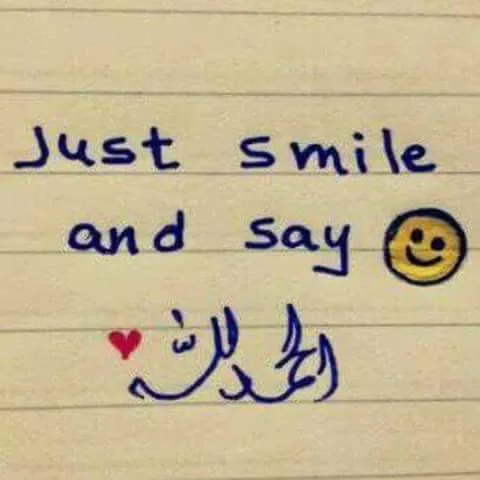 Just smile
and say
الحمد لله